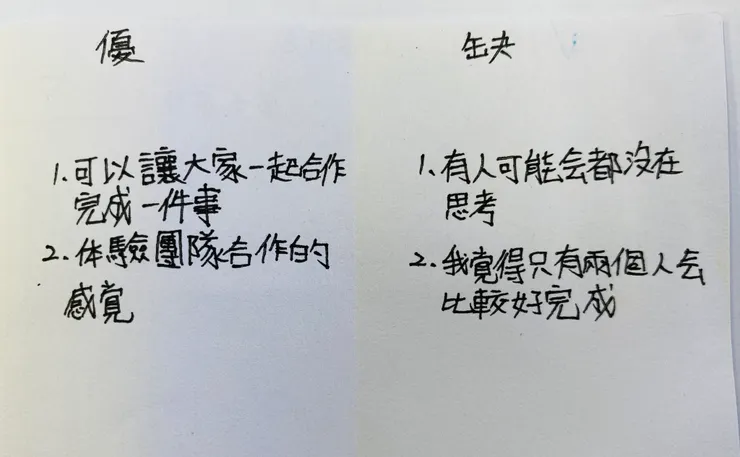 優
1.可以讓大家一起合作
完成一件事
2.体驗團隊合作的
感覚
缺
1.有人可能会都沒在
思考
2.我覚得只有兩個人会
比較好完成